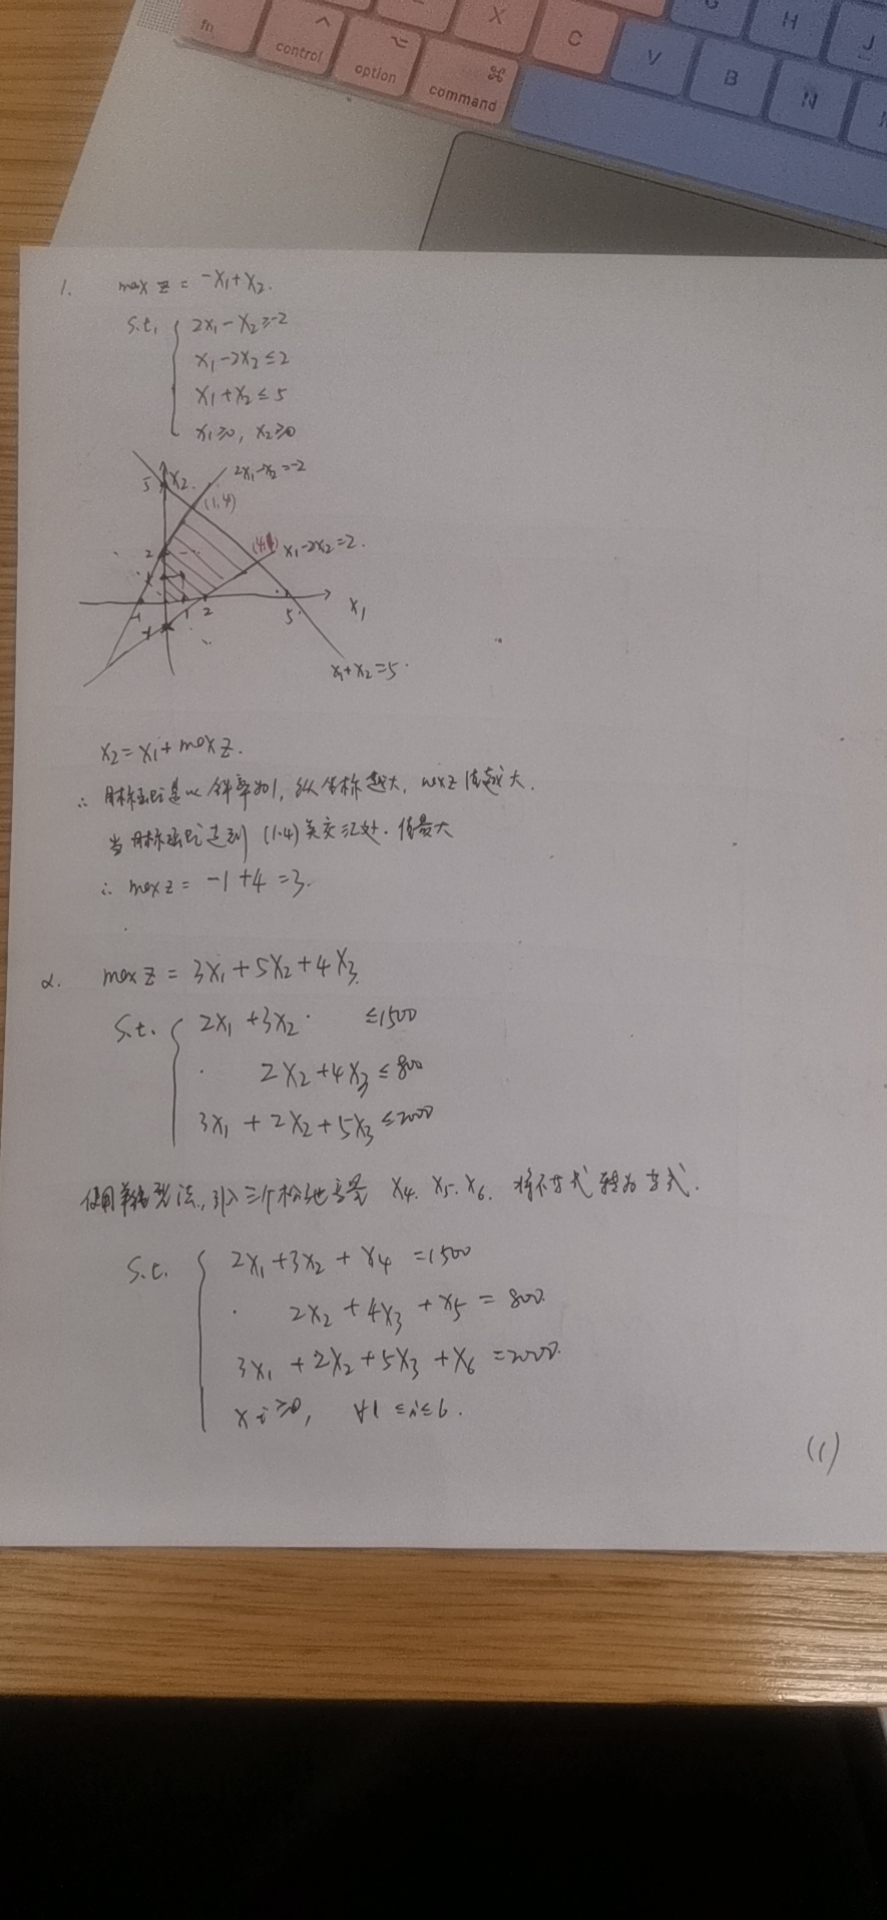 fn
control
option
⌘
command
X
C
V
B
N
H
J
1. max z = -x₁+x₂.
s.t. { 2x₁-x₂≥-2
x₁-2x₂≤2
x₁+x₂≤5
x₁≥0, x₂≥0
5 x₂ 2x₁-x₂=-2
(1,4)
2 x₁-2x₂=2.
-1 1 2 5 x₁
x₁+x₂=5.
x₂=x₁+max z.
∴ 目标函数是以斜率为1, 纵坐标越大, max z 值越大.
当目标函数达到 (1.4) 交汇处. 值最大
∴ max z = -1+4=3.
2. max z = 3x₁+5x₂+4x₃
s.t. { 2x₁+3x₂ ≤1500
2x₂+4x₃≤800
3x₁+2x₂+5x₃≤2000
使用单纯形法, 引入三个松弛变量 x₄. x₅. x₆. 将不等式转为等式.
s.t. { 2x₁+3x₂+x₄=1500
2x₂+4x₃+x₅=800.
3x₁+2x₂+5x₃+x₆=2000.
xᵢ≥0, ∀1≤i≤6.
(1)